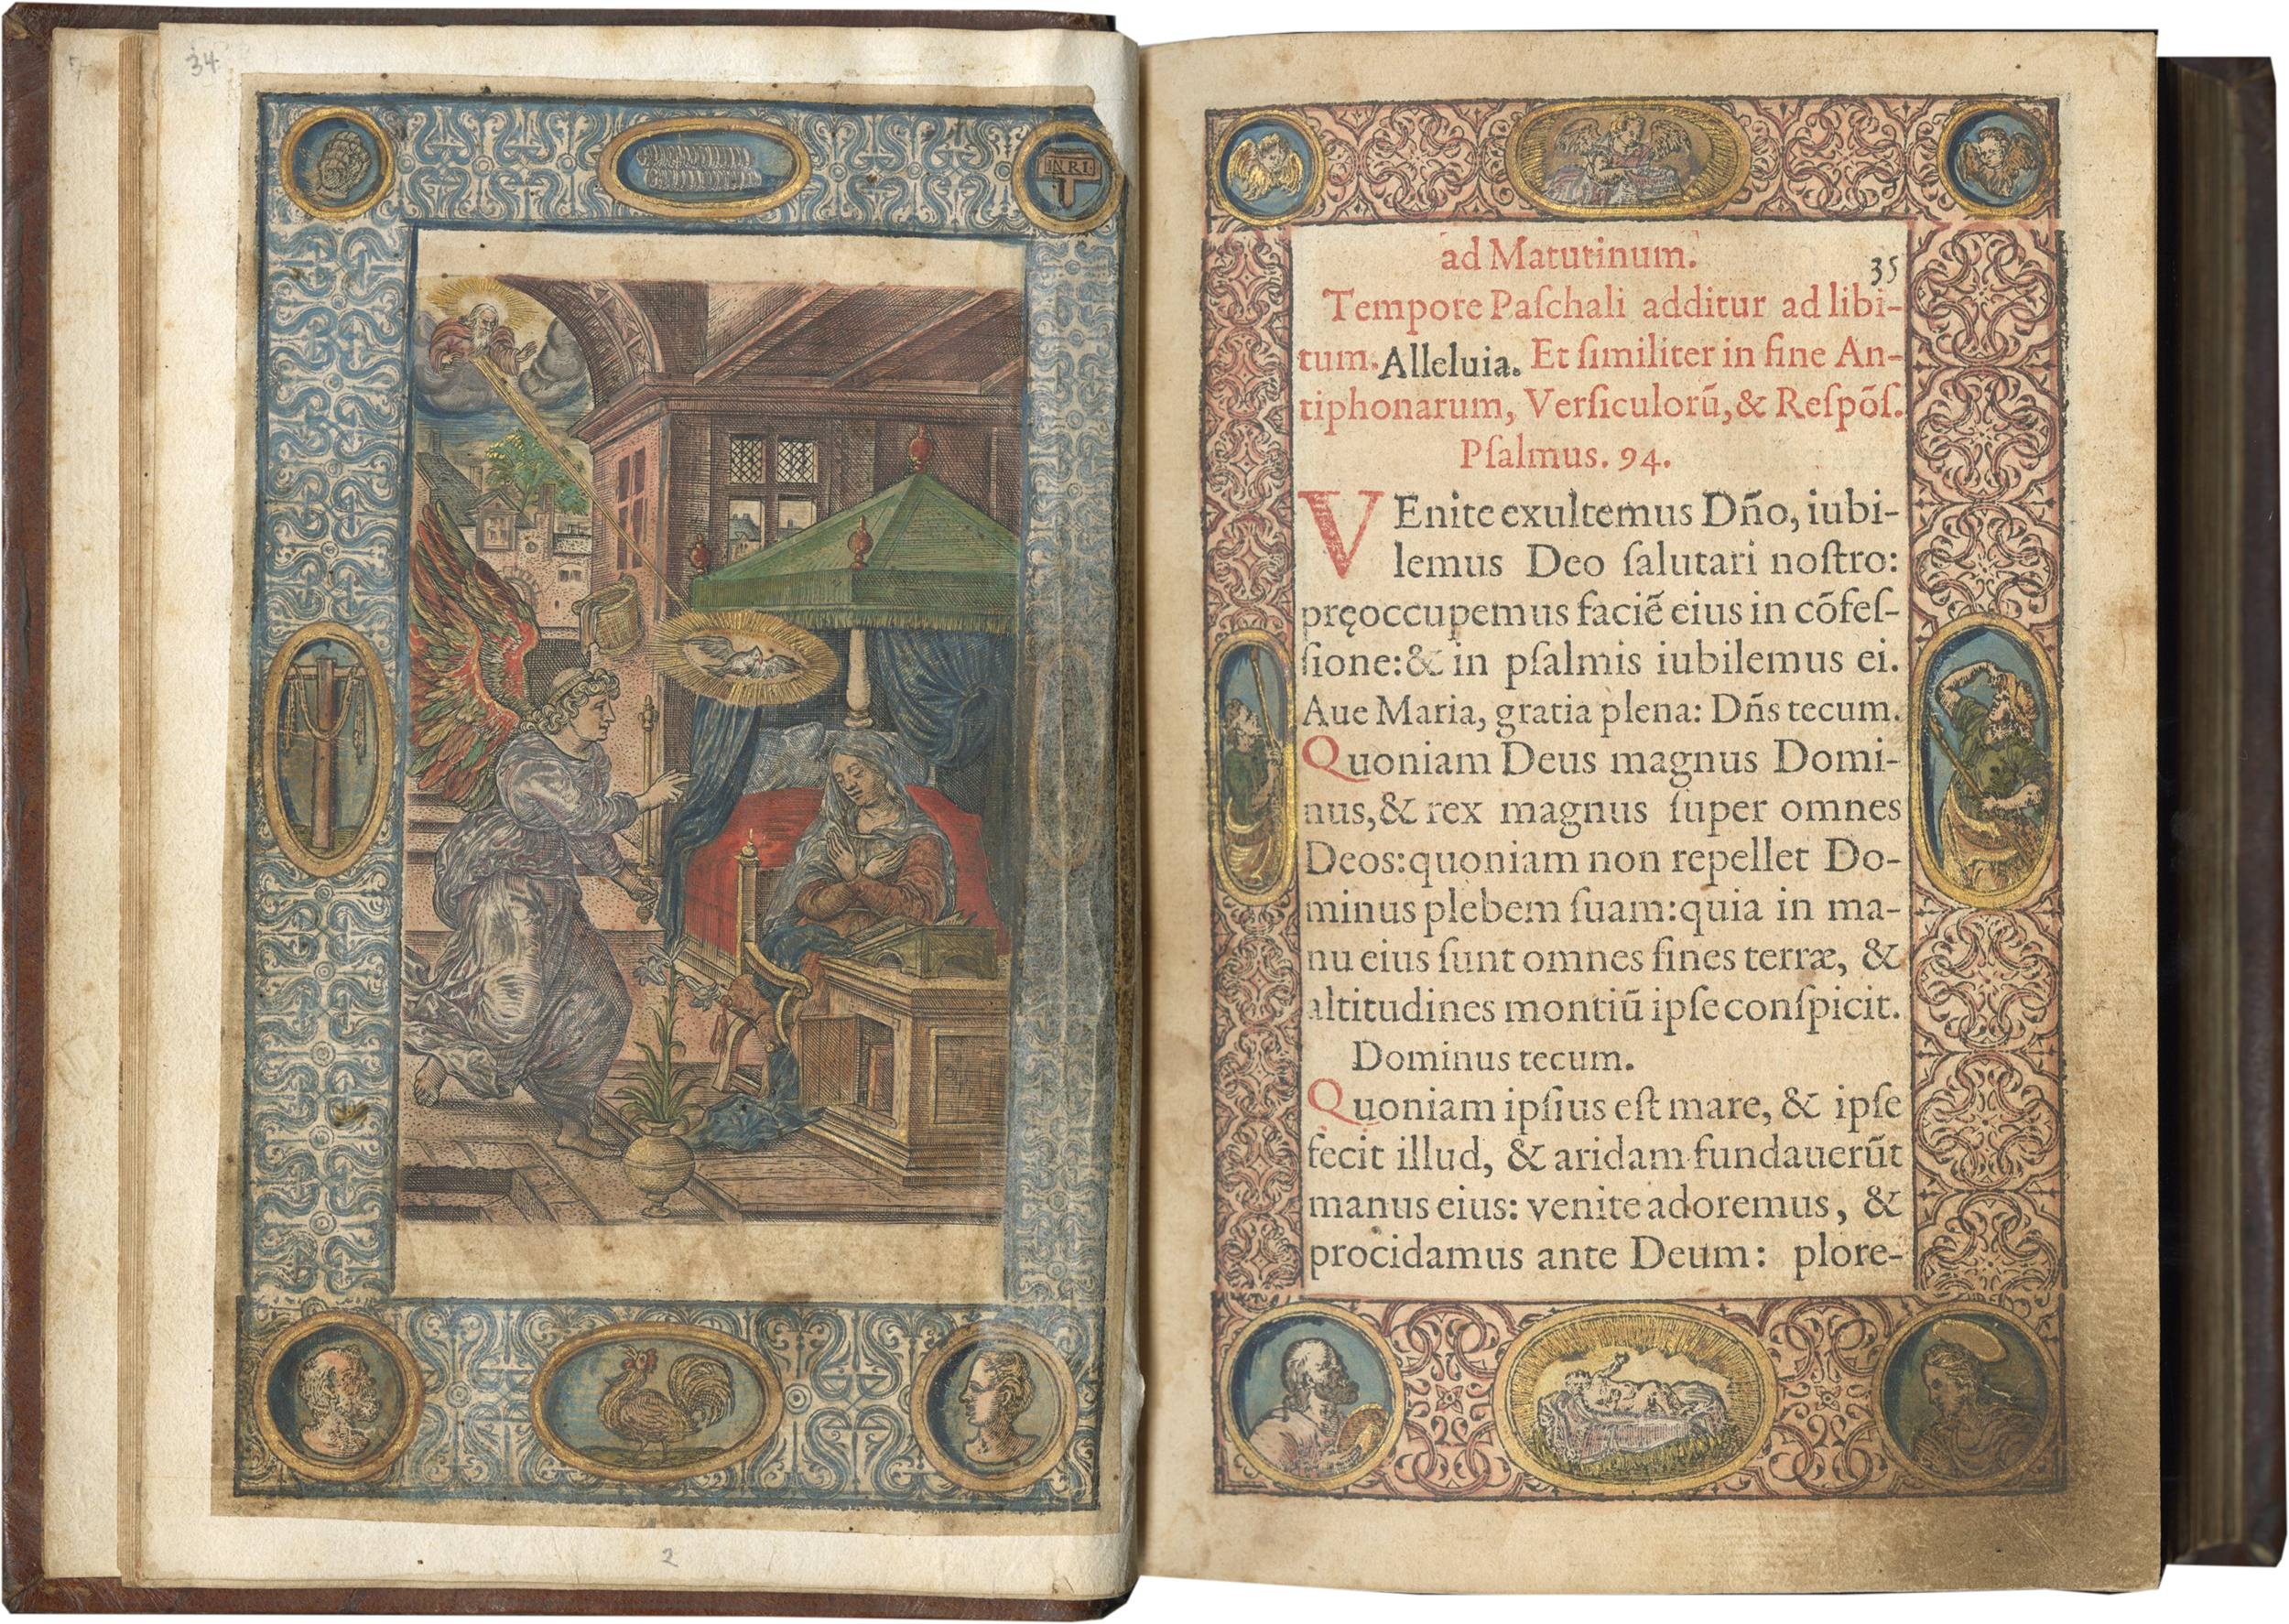 34
INRI
2
ad Matutinum.
35
Tempore Paſchali additur ad libi-
tum. Alleluia. Et ſimiliter in fine An-
tiphonarum, Verſiculorũ, & Reſpõſ.
Pſalmus. 94.
VEnite exultemus Dño, iubi-
lemus Deo ſalutari noſtro:
pręoccupemus faciẽ eius in cõfeſ-
ſione: & in pſalmis iubilemus ei.
Aue Maria, gratia plena: Dñs tecum.
Quoniam Deus magnus Domi-
nus, & rex magnus ſuper omnes
Deos: quoniam non repellet Do-
minus plebem ſuam: quia in ma-
nu eius ſunt omnes fines terræ, &
altitudines montiũ ipſe conſpicit.
Dominus tecum.
Quoniam ipſius eſt mare, & ipſe
fecit illud, & aridam fundauerũt
manus eius: venite adoremus, &
procidamus ante Deum: plore-